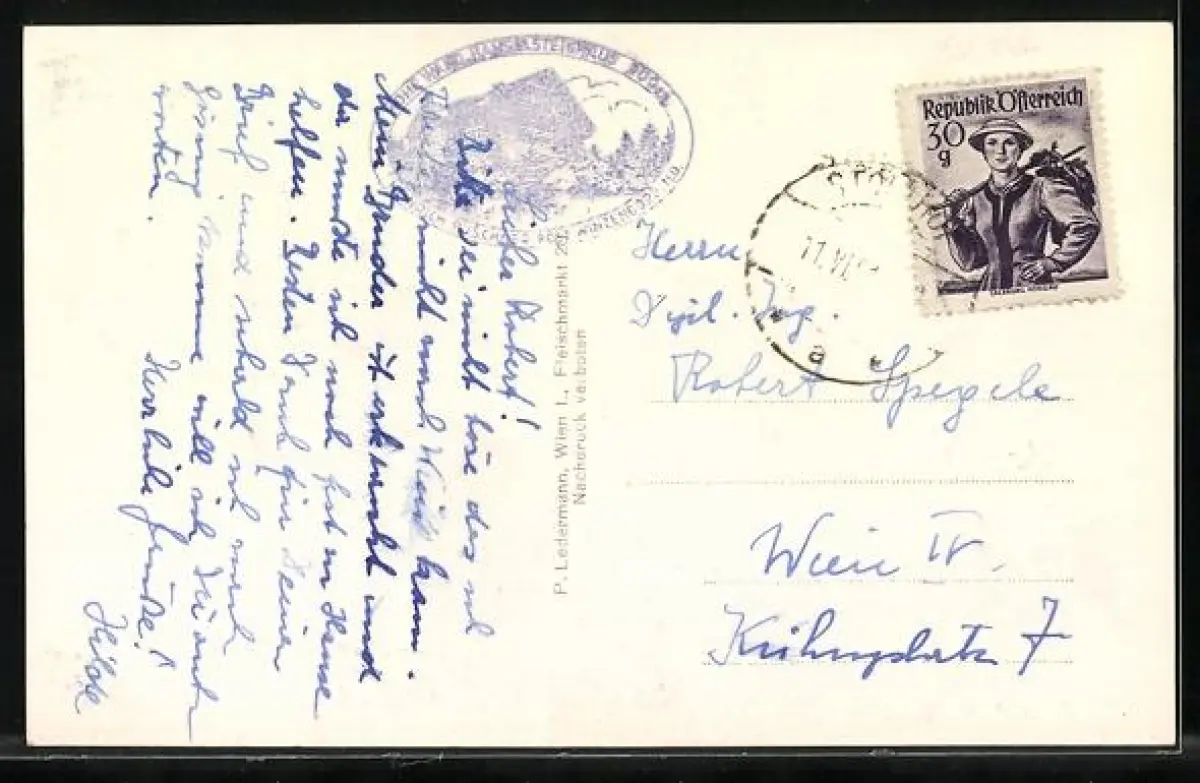 Lieber Robert!
Bitte sei nicht böse das ich
nicht nach Wien kam.
Mein Bruder ist erkrankt und
da mußte ich noch fest zu Hause
helfen. Besten Dank für Deinen
Brief und sobald ich mehr
komme will ich Dir ant-
worten.
Herzliche Grüße!
Hilde
P. Ledermann, Wien I., Fleischmarkt 20
Nachdruck verboten
Republik Österreich
30
g
Herrn
Dipl. Ing.
Robert Spegele
Wien IV.
Kühnplatz 7